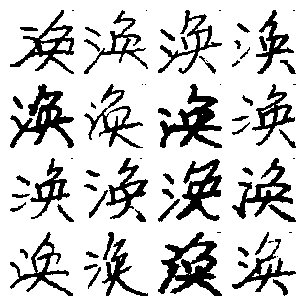 涣涣涣涣
涣涣涣涣
涣涣涣涣
涣涣涣涣